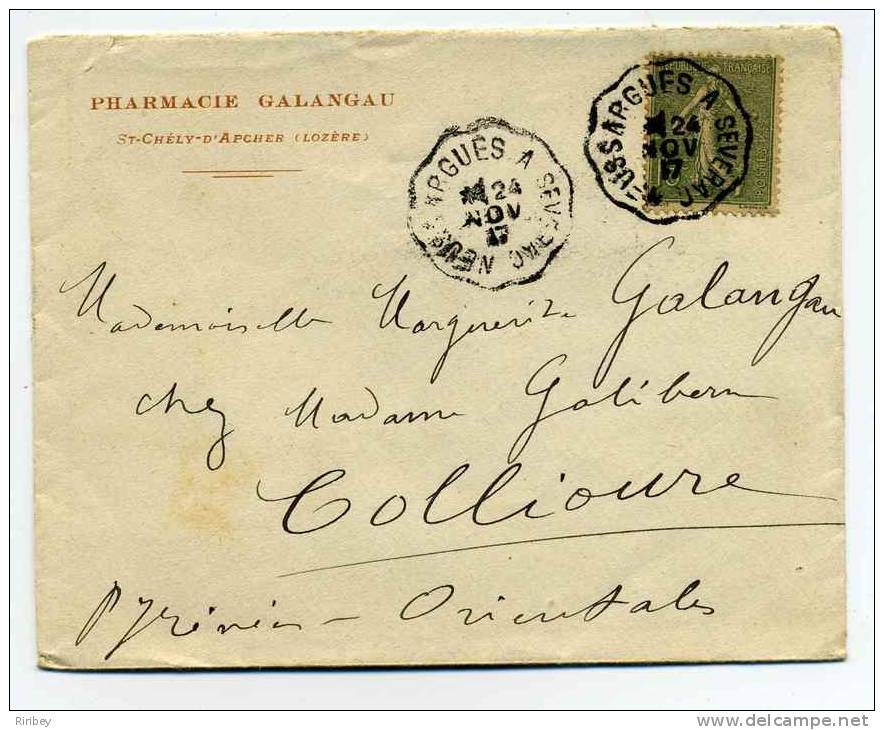 PHARMACIE GALANGAU
ST-CHÉLY-D'APCHER (LOZÈRE)
NEUSSARGUES A SEVERAC
24
NOV
17
NEUSSARGUES A SEVERAC
24
NOV
17
FRANÇAISE
Mademoiselle Marguerite Galangau
chez Madame Galibern
Collioure
Pyrénées-Orientales
Riribey
www.delcampe.net